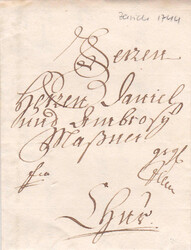 Zürich 1744
Herren
Herren Daniel
und Ambrosy
Maßner
Chur.